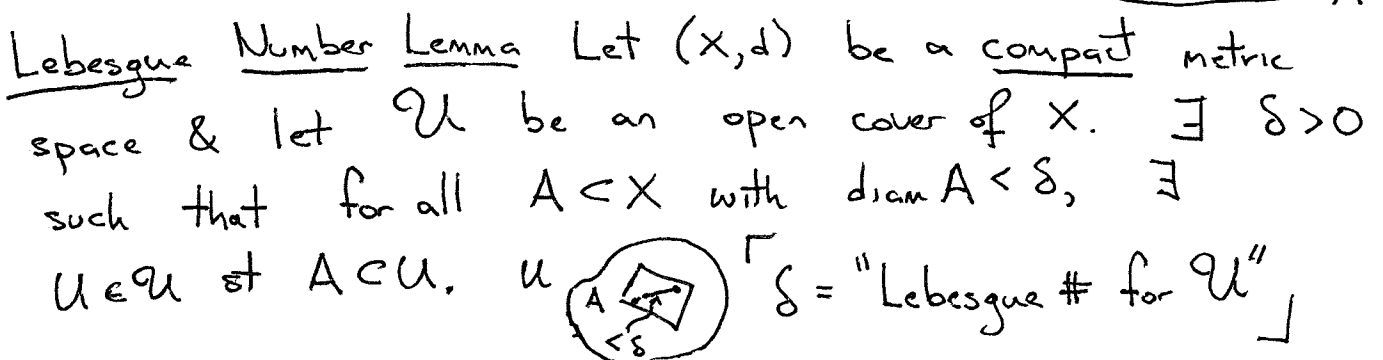 Lebesgue Number Lemma Let (X,d) be a compact metric
space & let 𝒰 be an open cover of X. ∃ δ>0
such that for all A⊂X with diam A<δ, ∃
U∈𝒰 st A⊂U. U A <δ ⌈δ = "Lebesgue # for 𝒰"⌋